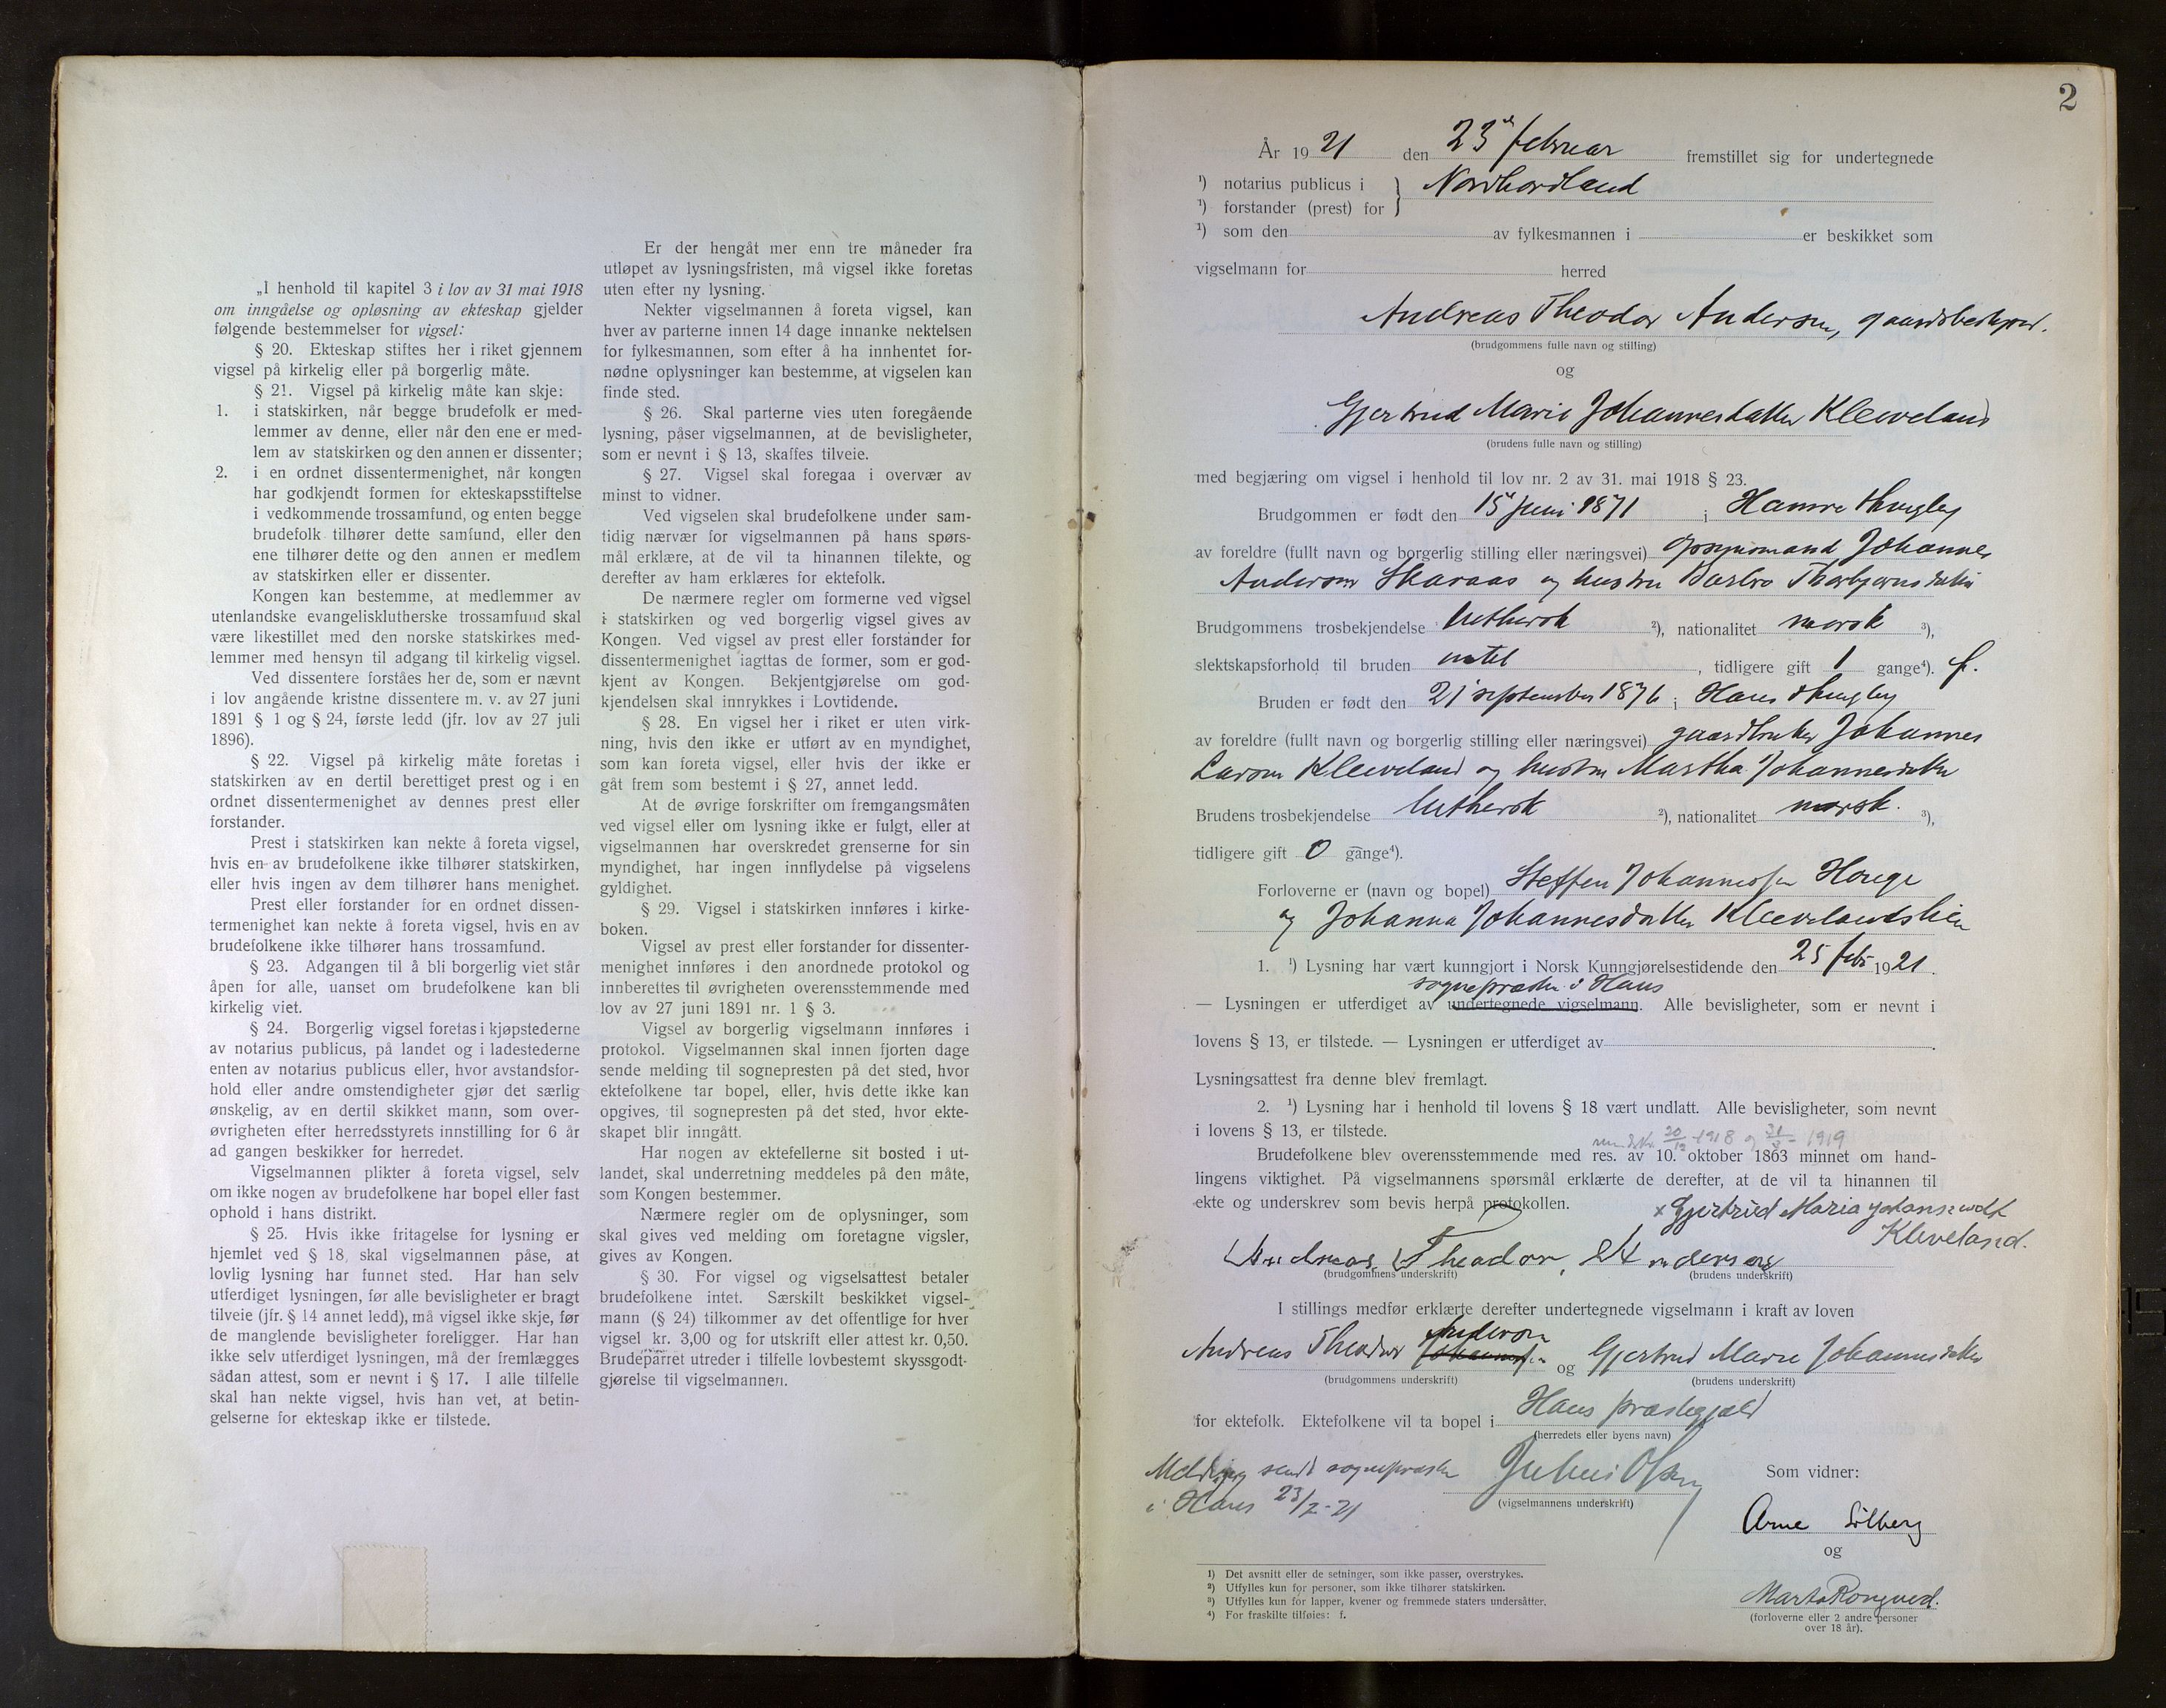 „I henhold til kapitel 3 i lov av 31 mai 1918
om inngåelse og opløsning av ekteskap gjelder
følgende bestemmelser for vigsel:
§ 20. Ekteskap stiftes her i riket gjennem
vigsel på kirkelig eller på borgerlig måte.
§ 21. Vigsel på kirkelig måte kan skje:
1. i statskirken, når begge brudefolk er med-
lemmer av denne, eller når den ene er med-
lem av statskirken og den annen er dissenter;
2. i en ordnet dissentermenighet, når kongen
har godkjendt formen for ekteskapsstiftelse
i vedkommende trossamfund, og enten begge
brudefolk tilhører dette samfund, eller den
ene tilhører dette og den annen er medlem
av statskirken eller er dissenter.
Kongen kan bestemme, at medlemmer av
utenlandske evangelisklutherske trossamfund skal
være likestillet med den norske statskirkes med-
lemmer med hensyn til adgang til kirkelig vigsel.
Ved dissentere forståes her de, som er nævnt
i lov angående kristne dissentere m. v. av 27 juni
1891 § 1 og § 24, første ledd (jfr. lov av 27 juli
1896).
§ 22. Vigsel på kirkelig måte foretas i
statskirken av en dertil berettiget prest og i en
ordnet dissentermenighet av dennes prest eller
forstander.
Prest i statskirken kan nekte å foreta vigsel,
hvis en av brudefolkene ikke tilhører statskirken,
eller hvis ingen av dem tilhører hans menighet.
Prest eller forstander for en ordnet dissen-
termenighet kan nekte å foreta vigsel, hvis en av
brudefolkene ikke tilhører hans trossamfund.
§ 23. Adgangen til å bli borgerlig viet står
åpen for alle, uanset om brudefolkene kan bli
kirkelig viet.
§ 24. Borgerlig vigsel foretas i kjøpstederne
av notarius publicus, på landet og i ladestederne
enten av notarius publicus eller, hvor avstandsfor-
hold eller andre omstendigheter gjør det særlig
ønskelig, av en dertil skikket mann, som over-
øvrigheten efter herredsstyrets innstilling for 6 år
ad gangen beskikker for herredet.
Vigselmannen plikter å foreta vigsel, selv
om ikke nogen av brudefolkene har bopel eller fast
ophold i hans distrikt.
§ 25. Hvis ikke fritagelse for lysning er
hjemlet ved § 18, skal vigselmannen påse, at
lovlig lysning har funnet sted. Har han selv
utferdiget lysningen, før alle bevisligheter er bragt
tilveie (jfr. § 14 annet ledd), må vigsel ikke skje, før
de manglende bevisligheter foreligger. Har han
ikke selv utferdiget lysningen, må der fremlægges
sådan attest, som er nevnt i § 17. I alle tilfelle
skal han nekte vigsel, hvis han vet, at betin-
gelserne for ekteskap ikke er tilstede.
Er der hengåt mer enn tre måneder fra
utløpet av lysningsfristen, må vigsel ikke foretas
uten efter ny lysning.
Nekter vigselmannen å foreta vigsel, kan
hver av parterne innen 14 dage innanke nektelsen
for fylkesmannen, som efter å ha innhentet for-
nødne oplysninger kan bestemme, at vigselen kan
finde sted.
§ 26. Skal parterne vies uten foregående
lysning, påser vigselmannen, at de bevisligheter,
som er nevnt i § 13, skaffes tilveie.
§ 27. Vigsel skal foregaa i overvær av
minst to vidner.
Ved vigselen skal brudefolkene under sam-
tidig nærvær for vigselmannen på hans spørs-
mål erklære, at de vil ta hinannen tilekte, og
derefter av ham erklæres for ektefolk.
De nærmere regler om formerne ved vigsel
i statskirken og ved borgerlig vigsel gives av
Kongen. Ved vigsel av prest eller forstander for
dissentermenighet iagttas de former, som er god-
kjent av Kongen. Bekjentgjørelse om god-
kjendelsen skal innrykkes i Lovtidende.
§ 28. En vigsel her i riket er uten virk-
ning, hvis den ikke er utført av en myndighet,
som kan foreta vigsel, eller hvis der ikke er
gåt frem som bestemt i § 27, annet ledd.
At de øvrige forskrifter om fremgangsmåten
ved vigsel eller om lysning ikke er fulgt, eller at
vigselmannen har overskredet grenserne for sin
myndighet, har ingen innflydelse på vigselens
gyldighet.
§ 29. Vigsel i statskirken innføres i kirke-
boken.
Vigsel av prest eller forstander for dissenter-
menighet innføres i den anordnede protokol og
innberettes til øvrigheten overensstemmende med
lov av 27 juni 1891 nr. 1 § 3.
Vigsel av borgerlig vigselmann innføres i
protokol. Vigselmannen skal innen fjorten dage
sende melding til sognepresten på det sted, hvor
ektefolkene tar bopel, eller, hvis dette ikke kan
opgives, til sognepresten på det sted, hvor ekte-
skapet blir inngått.
Har nogen av ektefellerne sit bosted i ut-
landet, skal underretning meddeles på den måte,
som Kongen bestemmer.
Nærmere regler om de oplysninger, som
skal gives ved melding om foretagne vigsler,
gives av Kongen.
§ 30. For vigsel og vigselsattest betaler
brudefolkene intet. Særskilt beskikket vigsel-
mann (§ 24) tilkommer av det offentlige for hver
vigsel kr. 3,00 og for utskrift eller attest kr. 0,50.
Brudeparret utreder i tilfelle lovbestemt skyssgodt-
gjørelse til vigselmannen.
2
År 1921 den 23 februar fremstillet sig for undertegnede
¹) notarius publicus i } Nordhordland
¹) forstander (prest) for
¹) som den av fylkesmannen i er beskikket som
vigselmann for herred
Andreas Theodor Andersen, gaardsbestyrer.
(brudgommens fulle navn og stilling)
og
Gjertrud Marie Johannesdatter Kleiveland
(brudens fulle navn og stilling)
med begjæring om vigsel i henhold til lov nr. 2 av 31. mai 1918 § 23.
Brudgommen er født den 15 juni 1871 i Hamre
av foreldre (fullt navn og borgerlig stilling eller næringsvei) opsynsmand Johannes
Andersen Skaraas og hustru Barbro Thorbjørnsdatter
Brudgommens trosbekjendelse luthersk ²), nationalitet norsk ³),
slektskapsforhold til bruden intet, tidligere gift 1 gange⁴). f.
Bruden er født den 21 september 1876 i Haus
av foreldre (fullt navn og borgerlig stilling eller næringsvei) gaardbruker Johannes
Larsen Kleiveland og hustru Martha Johannesdatter
Brudens trosbekjendelse luthersk ²), nationalitet norsk ³),
tidligere gift 0 gange⁴).
Forloverne er (navn og bopel) Steffen Johannessen Houge
og Johanna Johannesdatter Kleivelandslien
1. ¹) Lysning har vært kunngjort i Norsk Kunngjørelsestidende den 25 feb 1921.
sognepresten i Haus
— Lysningen er utferdiget av undertegnede vigselmann. Alle bevisligheter, som er nevnt i
lovens § 13, er tilstede. — Lysningen er utferdiget av
Lysningsattest fra denne blev fremlagt.
2. ¹) Lysning har i henhold til lovens § 18 vært undlatt. Alle bevisligheter, som nevnt
i lovens § 13, er tilstede.
20/12 1918 og 31/3 - 1919
Brudefolkene blev overensstemmende med res. av 10. oktober 1863 minnet om hand-
lingens viktighet. På vigselmannens spørsmål erklærte de derefter, at de vil ta hinannen til
ekte og underskrev som bevis herpå protokollen.
x Gjertrud Maria
Kleveland.
Andreas Theodor, Andersen
(brudgommens underskrift) (brudens underskrift)
I stillings medfør erklærte derefter undertegnede vigselmann i kraft av loven
Andersen
Andreas Theodor og Gjertrud Marie Johannesdatter
(brudgommens underskrift) (brudens underskrift)
for ektefolk. Ektefolkene vil ta bopel i Haus præstegjeld
(herredets eller byens navn)
Melding sendt sognepresten
i Haus 23/2-21
(vigselmannens underskrift)
Som vidner:
Arne Solberg
og
Marta
(forloverne eller 2 andre personer
over 18 år).
¹) Det avsnitt eller de setninger, som ikke passer, overstrykes.
²) Utfylles kun for personer, som ikke tilhører statskirken.
³) Utfylles kun for lapper, kvener og fremmede staters undersåtter.
⁴) For fraskilte tilføies: f.